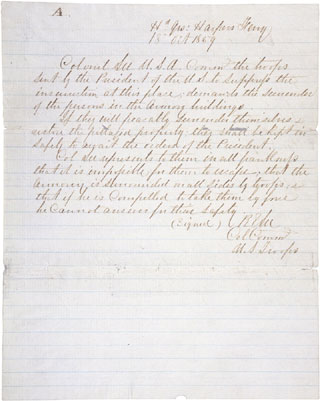 A.
Hd Qrs: Harpers Ferry
18 Oct 1859
Colonel Lee U.S.A. Comm the troops
sent by the President of the U.S. to suppress the
insurrection at this place, demands the surrender
of the persons in the Armory buildings
If they will peacably surrender themselves &
restore the pillaged property, they shall be kept in
safety to await the orders of the President.
Col Lee represents to them in all frankness
that it is impossible for them to escape; that the
Armory is surrounded on all sides by troops; &
that if he is compelled to take them by force
he cannot answer for their safety
(Signed) R E Lee
Col Comm
U.S. Troops